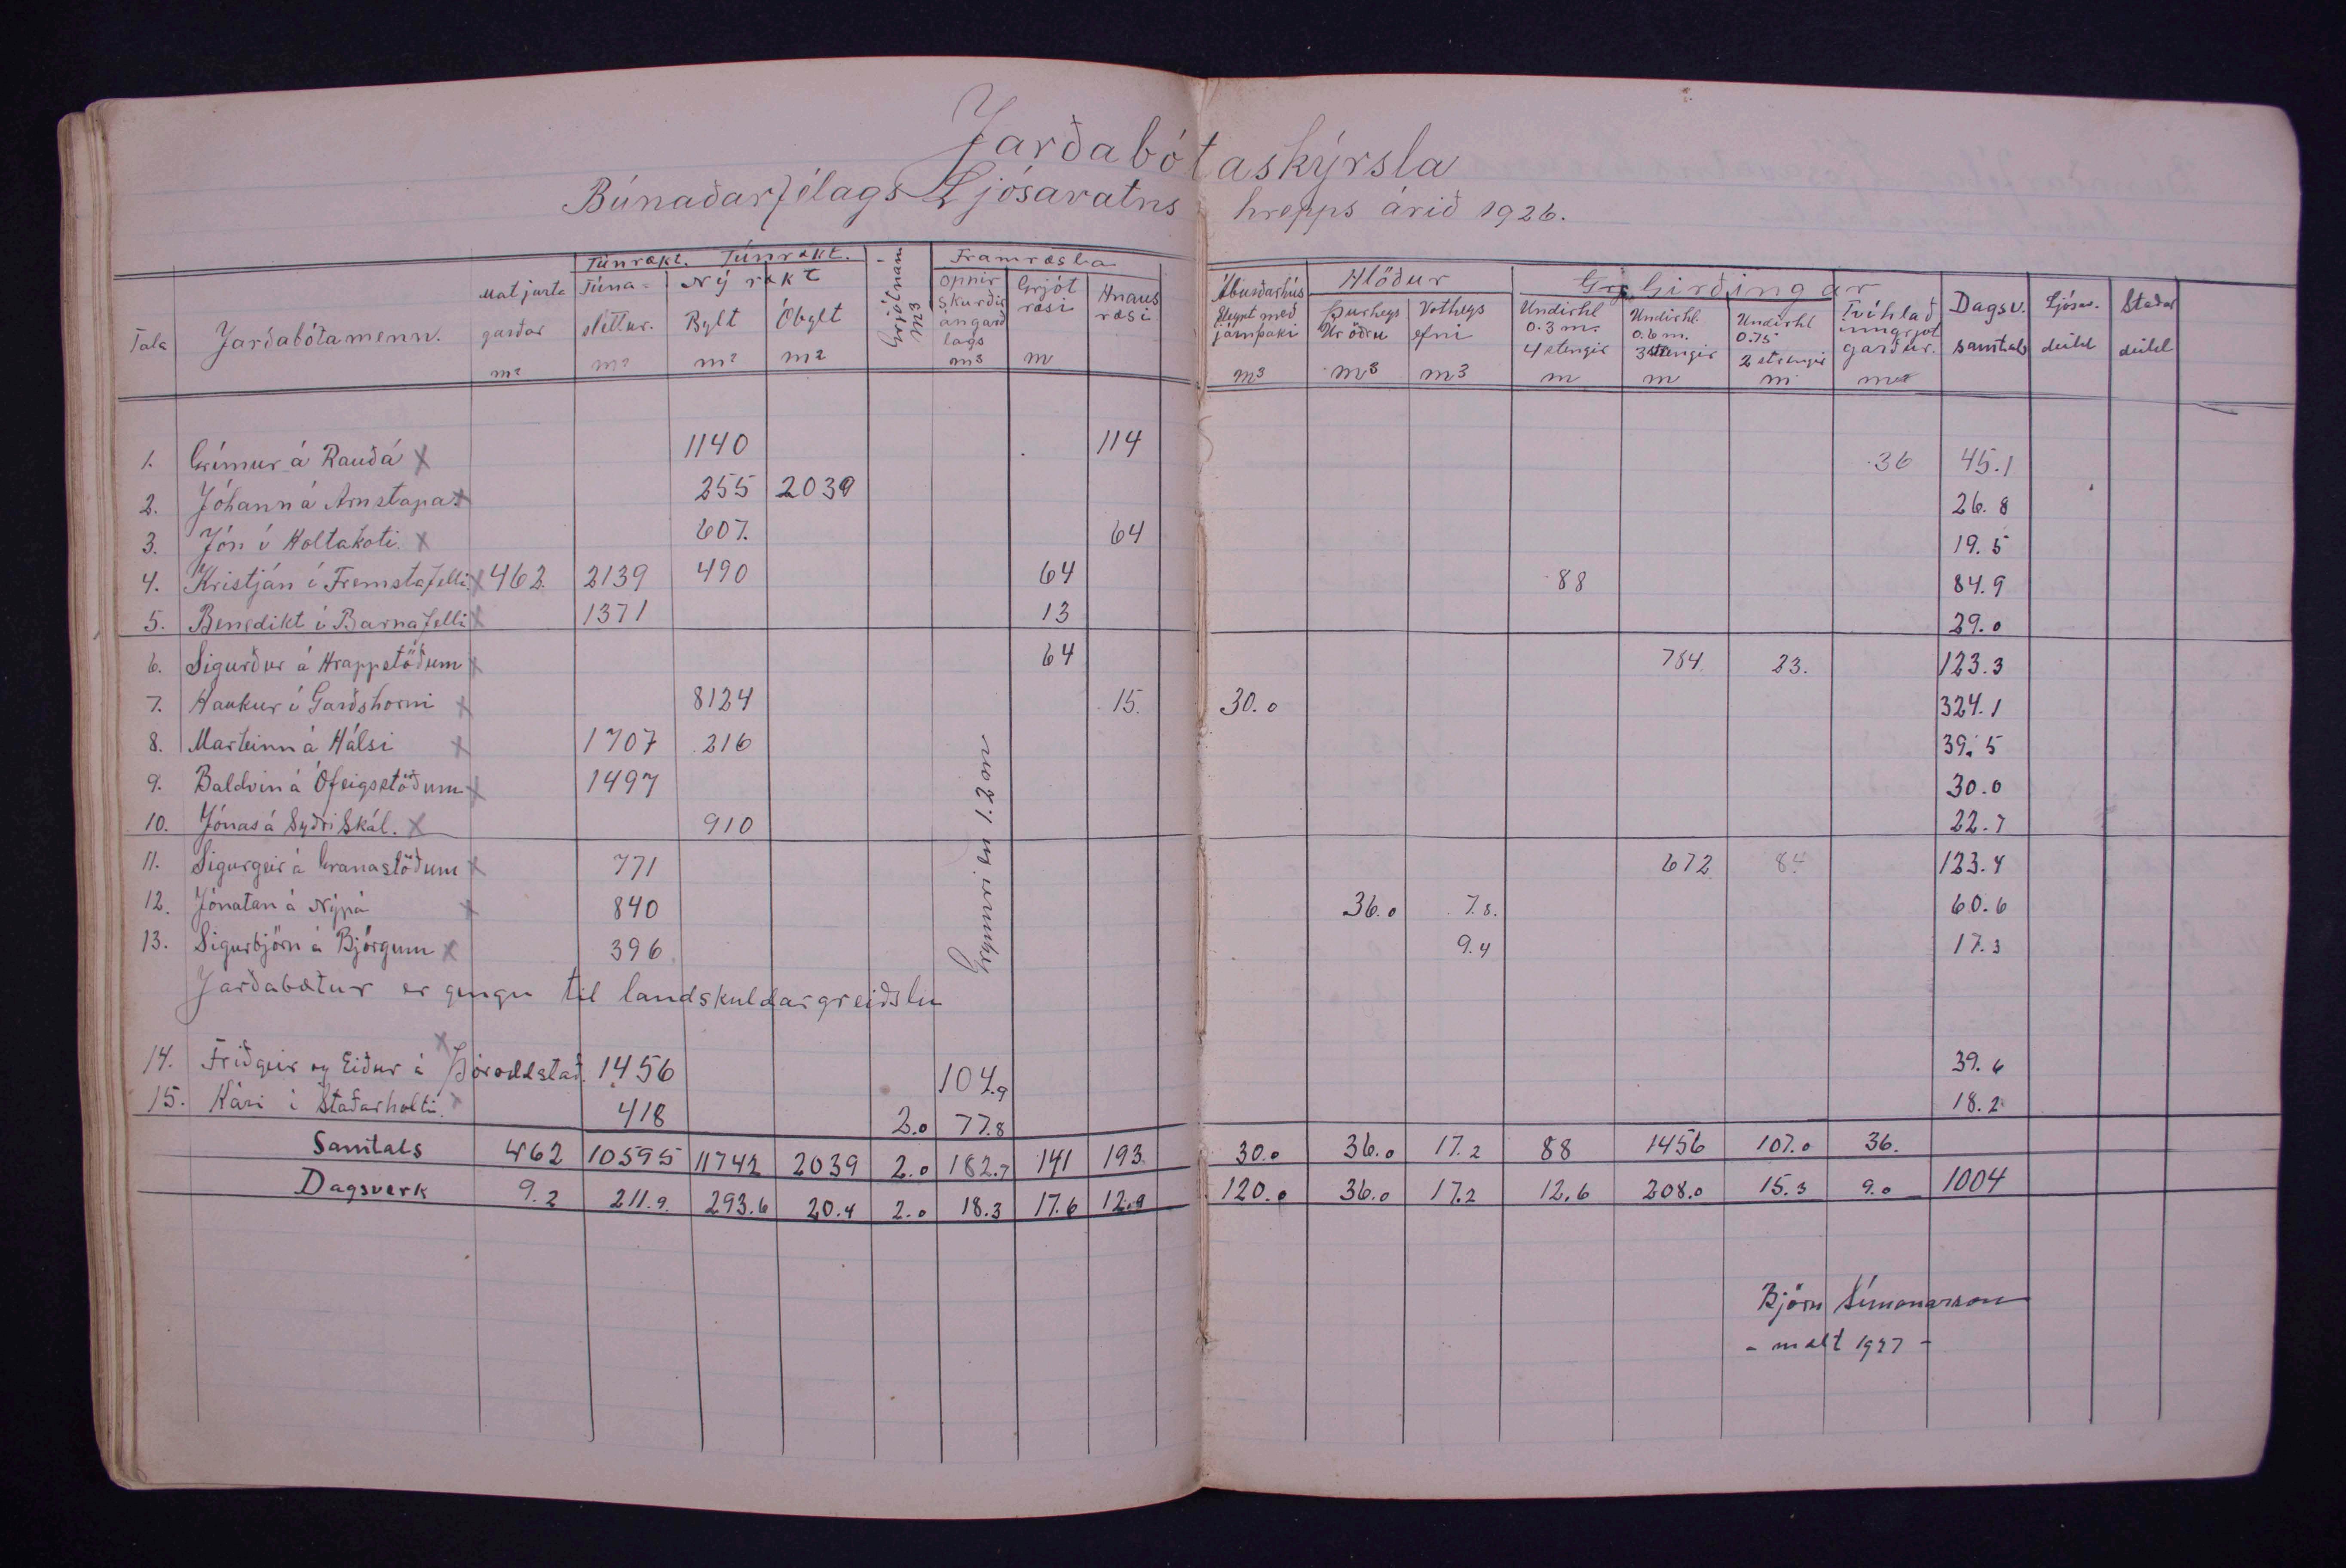 Jarðabótaskýrsla
Búnaðarfélags Ljósavatns hrepps árið 1926.
Túnrækt. Túnrækt. Grjótnám m³ Framræsla Áburðarhús Hlöður Girðingar
Tala Jarðabótamenn. Matjurta garðar m² Túna- sléttur. m² Ný rækt Bylt m² Óbylt m² Opnir skurðir ángarð lags m³ Grjót ræsi m Hnaus ræsi Steypt með járnþaki m³ Þurheys Úr öðru m³ Votheys efni m³ Undirhl 0.3 m. 4 strengir m Undirhl. 0.6 m. 3 strengir m Undirhl 0.75 2 strengir m Tvíhlað garður. m² Dagsv. samtals Ljósav. deild Staðar deild
1. Grímur á Rauðá x 1140 114 36 45.1
2. Jóhann á Arnstapa x 255 2039 26.8
3. Jón í Holtakoti. x 607. 64 19.5
4. Kristján í Fremstafelli. x 462. 2139 490 64 88 84.9
5. Benedikt í Barnafelli x 1371 13 29.0
6. Sigurður á Hrappstöðum x 64 784. 23. 123.3
7. Haukur í Garðshorni x 8124 15. 30.0 324.1
8. Marteinn á Hálsi x 1707 216 39.5
9. Baldvin á Ófeigsstöðum x 1497 30.0
10. Jónas á Syðri Skál. x 910 22.7
11. Sigurgeir á Granastöðum x 771 672 84. 123.4
12. Jónatan á Nýpá x 840 36.0 7.8. 60.6
13. Sigurbjörn á Björgum x 396 9.4 17.3
Grynnri en 1.2 m
Jarðabætur er gengu til landskuldargreiðslu
14. Friðgeir og Eiður á Þóroddstað. x 1456 104.9 39.6
15. Kári í Staðarholti. x 418 2.0 77.8 18.2
Samtals 462 10595 11742 2039 2.0 182.7 141 193 30.0 36.0 17.2 88 1456 107.0 36.
Dagsverk 9.2 211.9. 293.6 20.4 2.0 18.3 17.6 12.9 120.0 36.0 17.2 12.6 208.0 15.3 9.0 1004
Björn Símonarson
- mælt 1927 -